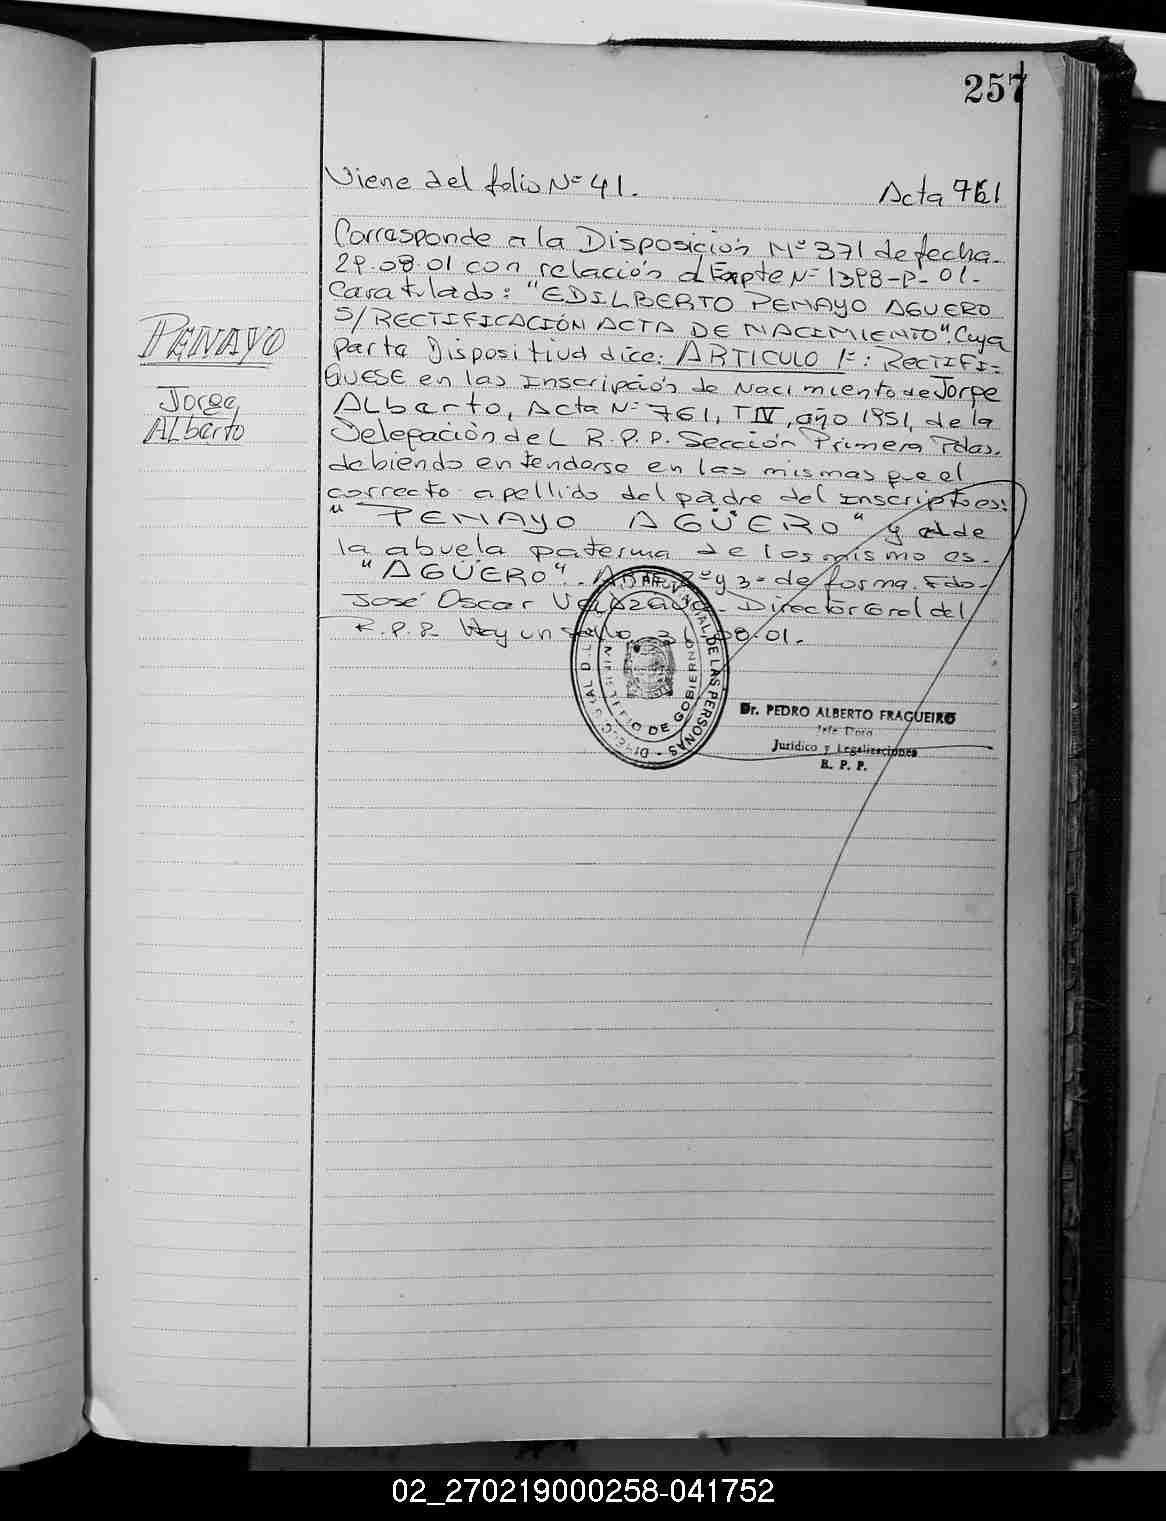 257
Viene del folio Nº 41.
Acta 761
Corresponde a la Disposición Nº 371 de fecha
29.08.01 con relación al Expte Nº 1398-P-01-
Caratulado: "EDILBERTO PENAYO AGUERO
S/RECTIFICACIÓN ACTA DE NACIMIENTO". Cuya
parte Dispositiva dice: ARTICULO 1º: RECTIFI=
QUESE en las Inscripción de Nacimiento de Jorge
Alberto, Acta Nº 761, T IV, año 1951, de la
Delegación del R.P.P. Sección Primera Pdas.
debiendo entenderse en las mismas que el
correcto apellido del padre del Inscripto es:
"PENAYO AGÜERO" y el de
la abuela paterna de los mismo es
"AGÜERO". 2º y 3º de forma. Fdo-
José Oscar Director Gral del
R.P.P. Hay un sello. 31.08.01.
PENAYO
Jorge
Alberto
DE LAS PERSONAS
DE GOBIERNO
Dr. PEDRO ALBERTO FRAGUEIRO
Jefe Dpto
Jurídico y Legalizaciones
R. P. P.
02_270219000258-041752